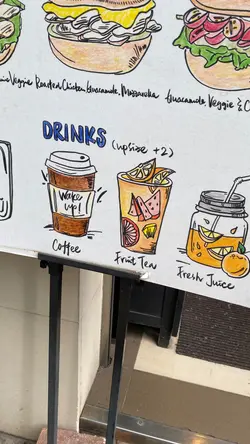 Veggie Roasted Chicken, Guacamole, Mozzarella
Guacamole, Veggie & C
DRINKS (upsize +2)
Wake up!
Coffee
Fruit Tea
Fresh Juice